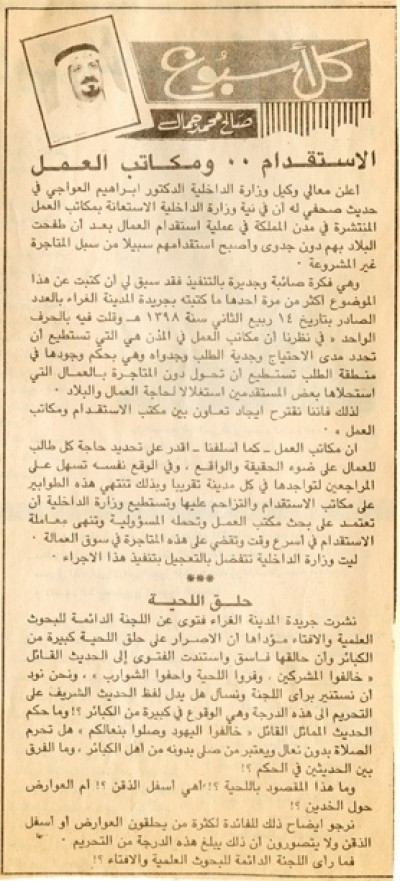 كل أسبوع
صالح محمد جمال
الاستقدام ٠٠ ومكاتب العمل
أعلن معالي وكيل وزارة الداخلية الدكتور ابراهيم العواجي في
حديث صحفي له أن في نية وزارة الداخلية الاستعانة بمكاتب العمل
المنتشرة في مدن المملكة في عملية استقدام العمال بعد أن طفحت
البلاد بهم دون جدوى وأصبح استقدامهم سبيلا من سبل المتاجرة
غير المشروعة ٠
وهي فكرة صائبة وجديرة بالتنفيذ فقد سبق لي أن كتبت عن هذا
الموضوع أكثر من مرة احدها ما كتبته بجريدة المدينة الغراء بالعدد
الصادر بتاريخ ١٤ ربيع الثاني سنة ١٣٩٨ هـ وقلت فيه بالحرف
الواحد « في نظرنا أن مكاتب العمل في المدن هي التي تستطيع أن
تحدد مدى الاحتياج وجدية الطلب وجدواه وهي بحكم وجودها في
منطقة الطلب تستطيع أن تحول دون المتاجرة بالعمال التي
استحلاها بعض المستقدمين استغلالا لحاجة العمال والبلاد ٠
لذلك فاننا نقترح ايجاد تعاون بين مكتب الاستقدام ومكاتب
العمل » ٠
ان مكاتب العمل ـ كما أسلفنا ـ أقدر على تحديد حاجة كل طالب
للعمال على ضوء الحقيقة والواقع ، وفي الوقع نفسه تسهل على
المراجعين لتواجدها في كل مدينة تقريبا وبذلك تنتهي هذه الطوابير
على مكاتب الاستقدام والتزاحم عليها وتستطيع وزارة الداخلية أن
تعتمد على بحث مكتب العمل وتحمله المسؤولية وتنهى معاملة
الاستقدام في أسرع وقت وتقضي على هذه المتاجرة في سوق العمالة ٠
ليت وزارة الداخلية تتفضل بالتعجيل بتنفيذ هذا الاجراء ٠
***
حلق اللحية
نشرت جريدة المدينة الغراء فتوى عن اللجنة الدائمة للبحوث
العلمية والافتاء مؤداها أن الاصرار على حلق اللحية كبيرة من
الكبائر وأن حالقها فاسق واستندت الفتوى إلى الحديث القائل
« خالفوا المشركين ، وفروا اللحية واحفوا الشوارب » ، ونحن نود
أن نستنير برأى اللجنة ونسأل هل يدل لفظ الحديث الشريف على
التحريم الى هذه الدرجة وهي الوقوع في كبيرة من الكبائر ؟! وما حكم
الحديث المماثل القائل « خالفوا اليهود وصلوا بنعالكم » هل تحرم
الصلاة بدون نعال ويعتبر من صلى بدونه من أهل الكبائر ، وما الفرق
بين الحديثين في الحكم ؟!
وما هذا المقصود باللحية ؟!! أهي أسفل الذقن ؟! أم العوارض
حول الخدين ؟!
نرجو ايضاح ذلك للفائدة لكثرة من يحلقون العوارض أو أسفل
الذقن ولا يتصورون أن ذلك يبلغ هذه درجة من التحريم
فما رأى اللجنة الدائمة للبحوث العلمية والافتاء ؟!